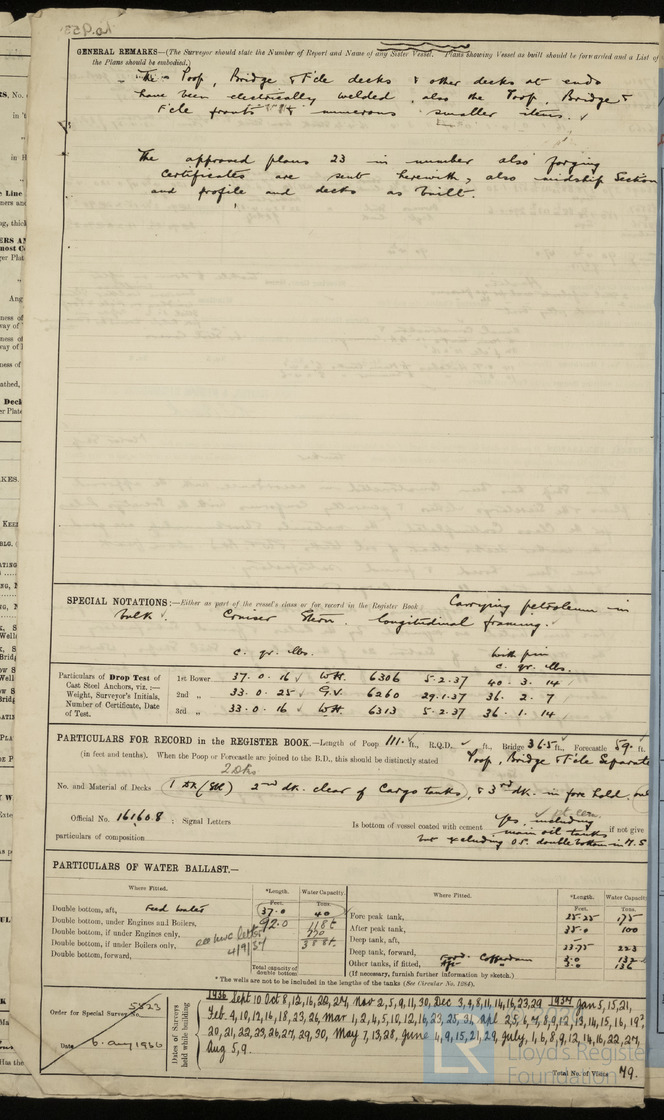 GENERAL REMARKS—(The Surveyor should state the Number of Report and Name of any Sister Vessel. Plans showing Vessel as built should be forwarded and a List of
the Plans should be embodied.)
The Poop, Bridge & F'cle decks & other decks at ends
have been electrically welded, also the Poop, Bridge &
F'cle fronts & numerous smaller items.
The approved plans 23 in number also forging
Certificates are sent herewith, also midship Section
and profile and decks as built.
SPECIAL NOTATIONS:—Either as part of the vessel's class or for record in the Register Book Carrying petroleum in
bulk. Cruiser Stern. Longitudinal framing.
c. qr. lbs. With pin
c. qr. lbs.
Particulars of Drop Test of
Cast Steel Anchors, viz.:—
Weight, Surveyor's Initials,
Number of Certificate, Date
of Test.
1st Bower 37. 0. 16 W.H. 6306 5.2.37 40. 3. 14
2nd „ 33. 0. 25 G.V. 6260 29.1.37 36. 2. 7
3rd „ 33. 0. 16 W.H. 6313 5.2.37 36. 1. 14
PARTICULARS FOR RECORD in the REGISTER BOOK.—Length of Poop 111. ft., R.Q.D. ft., Bridge 36.5 ft., Forecastle 59. ft.
(in feet and tenths). When the Poop or Forecastle are joined to the B.D., this should be distinctly stated Poop, Bridge & F'cle Separate
2 Dks
No. and Material of Decks 1 Dk (Stl) 2nd dk. clear of Cargo tanks, & 3rd dk. in fore hold.
Official No. 161608 ; Signal Letters Is bottom of vessel coated with cement Yes, including if not give
particulars of composition main oil tanks
but excluding O.F. double bottom in M.S
PARTICULARS OF WATER BALLAST.—
Where Fitted. *Length. Water Capacity.
Feet. Tons.
Double bottom, aft, Feed water 37.0 40
Double bottom, under Engines and Boilers, 92.0
Double bottom, if under Engines only,
Double bottom, if under Boilers only,
Double bottom, forward,
4/9/37
Total capacity of
double bottom
Where Fitted. *Length. Water Capacity
Feet. Tons.
Fore peak tank, 25.25 175
After peak tank, 35.0 100
Deep tank, aft,
Deep tank, forward, 23.75 223
Other tanks, if fitted, Ford. Cofferdam 3.0 132
Aft 3.0 136
(If necessary, furnish further information by sketch.)
* The wells are not to be included in the lengths of the tanks (See Circular No. 1284).
Order for Special Survey No. 5823
Date 6. Aug 1936
Dates of Surveys
held while building
1936 Sept 10 Oct 8, 12, 16, 22, 27, Nov 2, 5, 9, 11, 30, Dec 3, 4, 8, 11, 14, 16, 23, 29 1937 Jan 5, 15, 21,
Feb. 9, 10, 12, 16, 18, 23, 26, Mar 1, 2, 4, 5, 10, 12, 16, 23, 25, 31, Apl 2, 5, 6, 7, 8, 9, 12, 13, 14, 15, 16, 19,
20, 21, 22, 23, 26, 27, 29, 30, May 7, 13, 28, June 4, 9, 15, 21, 29, July, 1, 6, 8, 9, 12, 14, 16, 22, 27,
Aug 5, 9.
Total No. of Visits 79.
LR Lloyd's Register
Foundation